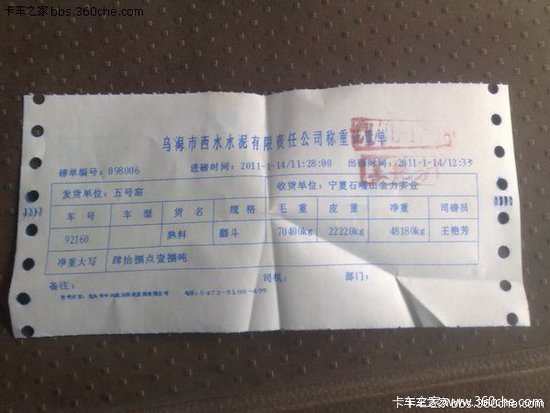 卡车之家bbs.360che.com
乌海市西水水泥有限责任公司称重计量单
磅单编号：098006 进磅时间：2011-1-14/11:28:00 出磅时间：2011-1-14/12:33
发货单位：五号窑 收货单位：宁夏石嘴山金力实业
车号 车型 货名 规格 毛重 皮重 净重 司磅员
92160 熟料 翻斗 70400kg 22220kg 48180kg 王艳芳
净重大写 肆拾捌点壹捌吨
备注： 司机： 部门：
电话：0472-5100-405
卡车之家www.360che.com
卡车之家bbs.360che.com